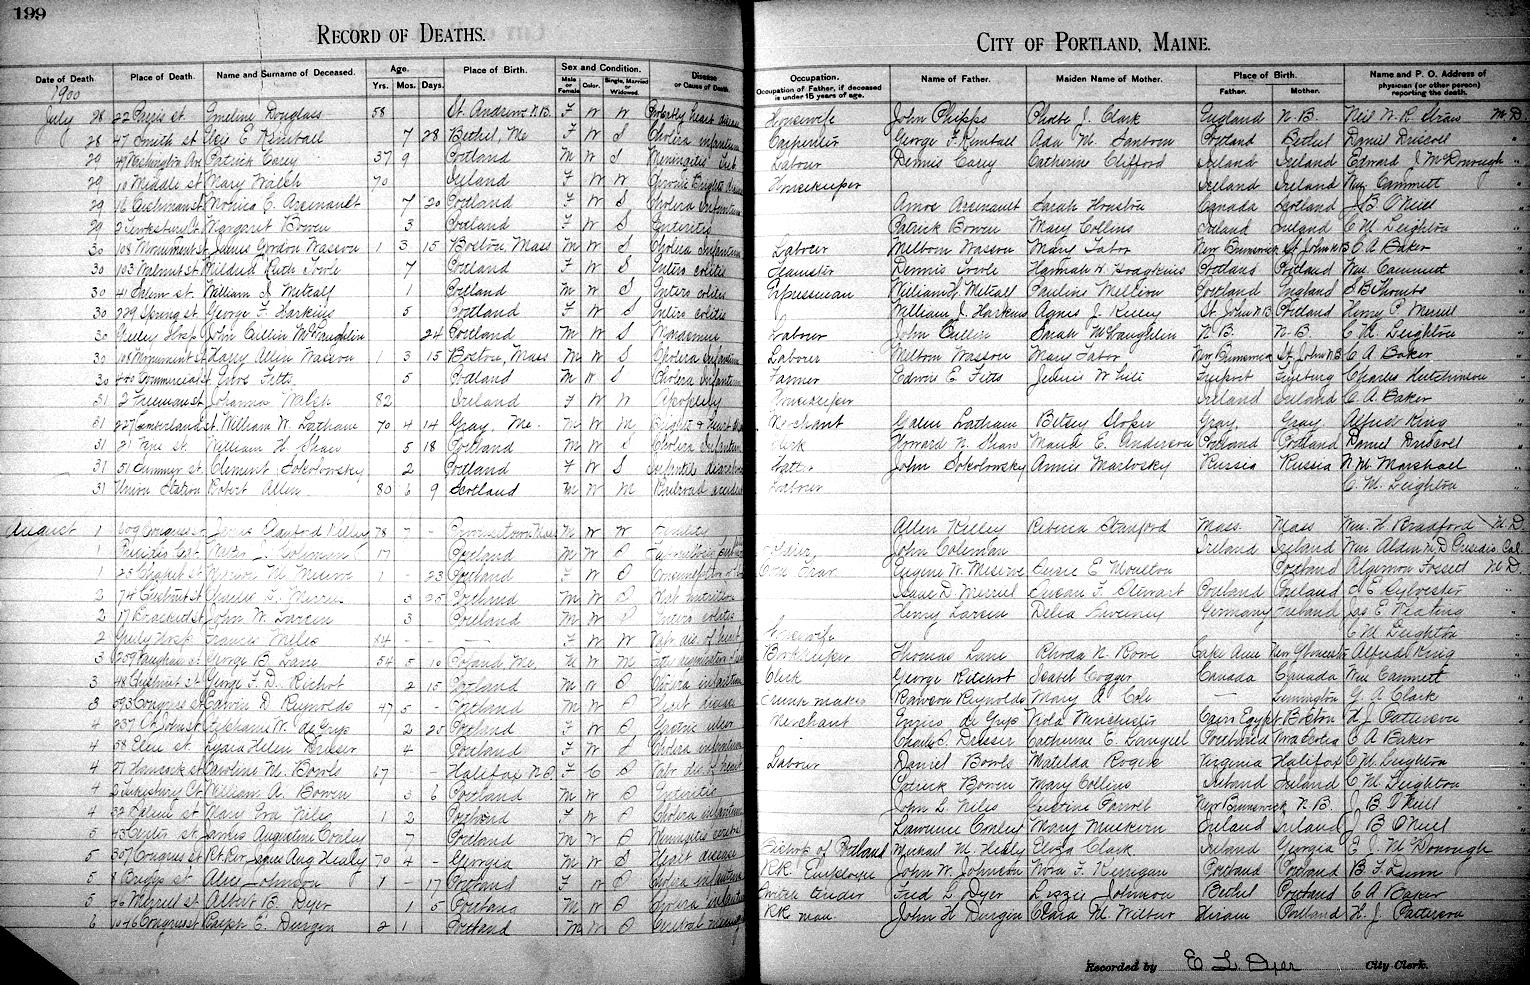 199
RECORD OF DEATHS.
CITY OF PORTLAND, MAINE.
Date of Death. Place of Death. Name and Surname of Deceased. Age. Yrs. Mos. Days. Place of Birth. Sex and Condition. Male or Female Color. Single, Married or Widowed. Disease or Cause of Death. Occupation. Occupation of Father, if deceased is under 15 years of age. Name of Father. Maiden Name of Mother. Place of Birth. Father. Mother. Name and P. O. Address of physician (or other person) reporting the death.
1900
July 28 22 Parris st Emeline Douglass 58 St. Andrews N.B. F W W heart disease Housewife John Phipps Phebe J. Clark England N. B. M D.
28 47 Smith st Kimball 7 28 Bethel, Me F W S Cholera infantum Carpenter George F. Kimball Ada M. Sanborn Portland Bethel Daniel Driscoll "
29 49 Washington Ave Patrick Carey 37 9 Portland M W S Meningitis Labour Dennis Carey Catherine Clifford Ireland Ireland Edward J. McDonough "
29 10 Middle st Mary Walch 70 Ireland F W W Chronic Brights Housekeeper Ireland Ireland Wm Cammett
29 16 Cushman st Monica C. Arsenault 7 20 Portland F W S Cholera Infantum Amos Arsenault Sarah Houston Canada Scotland J. B O'Neill "
29 2 Tewksbury Ct Margaret Bowen 3 Portland F W S Enteritis Patrick Bowen Mary Collins Ireland Ireland C M Leighton "
30 108 Monument st James Gordon Wasson 1 3 15 Boston Mass M W S Cholera Infantum Labour Melborn Wasson Mary Tabor New Brunswick St John N B C A Baker "
30 103 Walnut st Mildred Ruth Towle 7 Portland F W S Entero colitis Teamster Dennis Towle Hannah W. Hodgkins Portland Portland Wm Cammett "
30 41 Salem st. William S. Metcalf 1 Portland M W S Entero colitis Expressman William H. Metcalf Pauline Portland England S B Thombs "
30 229 Spring st George F. Harkins 5 Portland F W S Entero colitis William J. Harkins Agnes J. Kelley St. John N B Portland Henry P. Merrill
30 Greeley Hosp John Cillin McLaughlin 24 Portland M W S Marasmus Labour John Cillin Sarah McLaughlin N B. N B. C M Leighton "
30 108 Monument st Harry Allen Wasson 1 3 15 Boston, Mass M W S Cholera Infantum Labour Melborn Wasson Mary Tabor New Brunswick St. John N B C A Baker "
30 Commercial st Fitts 5 Portland M W S Cholera Infantum Farmer Edwin E Fitts Jennie W. Freeport Fryeburg Charles Hutchinson "
31 2 Freeman st Johanna Walsh 82 Ireland F W W Apoplexy Housekeeper Ireland Ireland C A. Baker "
31 227 Cumberland st. William W. Latham 70 4 14 Gray, Me. M W M Merchant Galen Latham Betsey Gray Gray Alfred King "
31 21 st. William H Shaw 5 18 Portland M W S Cholera Infantum Clerk Howard N. Shaw Maude E. Anderson Portland Portland Daniel Driscoll "
31 51 Summer st. Clement Sokolowsky 2 Portland F W S John Sokolowsky Annie Russia Russia N. M. Marshall "
31 Union Station Robert Allen 80 6 9 Scotland M W M Railroad accident Labour C. M. Leighton "
August 1 609 Congress st James Stanford Kelley 78 7 - Provincetown Mass M W W Allen Kelley Rebecca Stanford Mass Mass Wm. H. Bradford M D.
1 Coleman 17 Portland M W S Soldier John Coleman Ireland Ireland Wm Alden M D Presidio Cal.
1 23 Chapel st M. Meserve 1 - 23 Portland F W S Eugene W. Meserve Susie E Moulton Portland Algernon Fossett M D.
2 74 Chestnut st Charles L. Merrill 3 25 Portland M W S Mal nutrition Isaac D. Merrill Susan F. Stewart Portland Portland A. E. Sylvester "
2 17 Brackett st John W. Larsen 3 Portland M W S Entero colitis Henry Larsen Delia Sweeney Germany Ireland Jas E. Keating "
2 Greely Hosp Frances Miles 84 - - F W W Valv dis. of heart Housewife C M Leighton "
3 259 Vaughan st George B. Lane 54 5 10 Poland, Me. M W M Bookkeeper Thomas Lane Rhoda N. Rowe Cape Ann New Gloucester Alfred King "
3 48 Chestnut st George F. D. Richot 2 15 Portland M W S Cholera infantum Clerk George Richot Isabel Cogger Canada Canada Wm Cammett "
3 593 Congress st Edwin D. Reynolds 47 5 - Portland M W Heart disease Trunk maker Rawson Reynolds Mary A Cole — Limington G. A. Clark "
4 237 St. John st W. de Grys 2 25 Portland F W S Gastric ulcer Merchant de Grys Viola Winchester Cairo Egypt Boston H J Patterson "
4 58 Elm st. Lydia Helen Dresser 4 Portland F W S Cholera infantum Charles S. Dresser Catherine E. Portland Nova Scotia C A Baker "
4 Hancock st Caroline M. Bowls 67 - Halifax N.S. F C S Valv dis. of heart Labour Daniel Bowls Matilda Virginia Halifax C M. Leighton "
4 2 Tukesbury Ct William A. Bowen 3 6 Portland M W S Enteritis Patrick Bowen Mary Collins Ireland Ireland C M. Leighton "
4 32 Salem st. Mary Eva Niles 1 2 Portland F W S Cholera infantum John L. Niles New Brunswick N. B. J B O'Neill "
5 43 Center st James Augustine Conley 7 Portland M W S Meningitis Lawrence Conley Mary Ireland Ireland J B O'Neill "
5 307 Congress st Rt. Rev. James Aug Healy 70 4 - Georgia M W S Heart disease Bishop of Portland Michael M. Healy Eliza Clark Ireland Georgia E. J. McDonough "
5 8 Briggs st Alice Johnson 1 - 17 Portland F W S Cholera infantum R.R. Employee John W. Johnson Nora F. Kerrigan Portland Portland B. F. Dunn "
5 46 Merrill st Albert B. Dyer 1 5 Portland M W S Cholera infantum Switch tender Fred L Dyer Lizzie Johnson Bethel Portland C A Baker "
6 1046 Congress st Ralph E. Durgin 2 1 Portland M W S R.R. man. John H Durgin Clara M. Wilbur Hiram Portland H. J. Patterson "
Recorded by E. L. Dyer City Clerk.